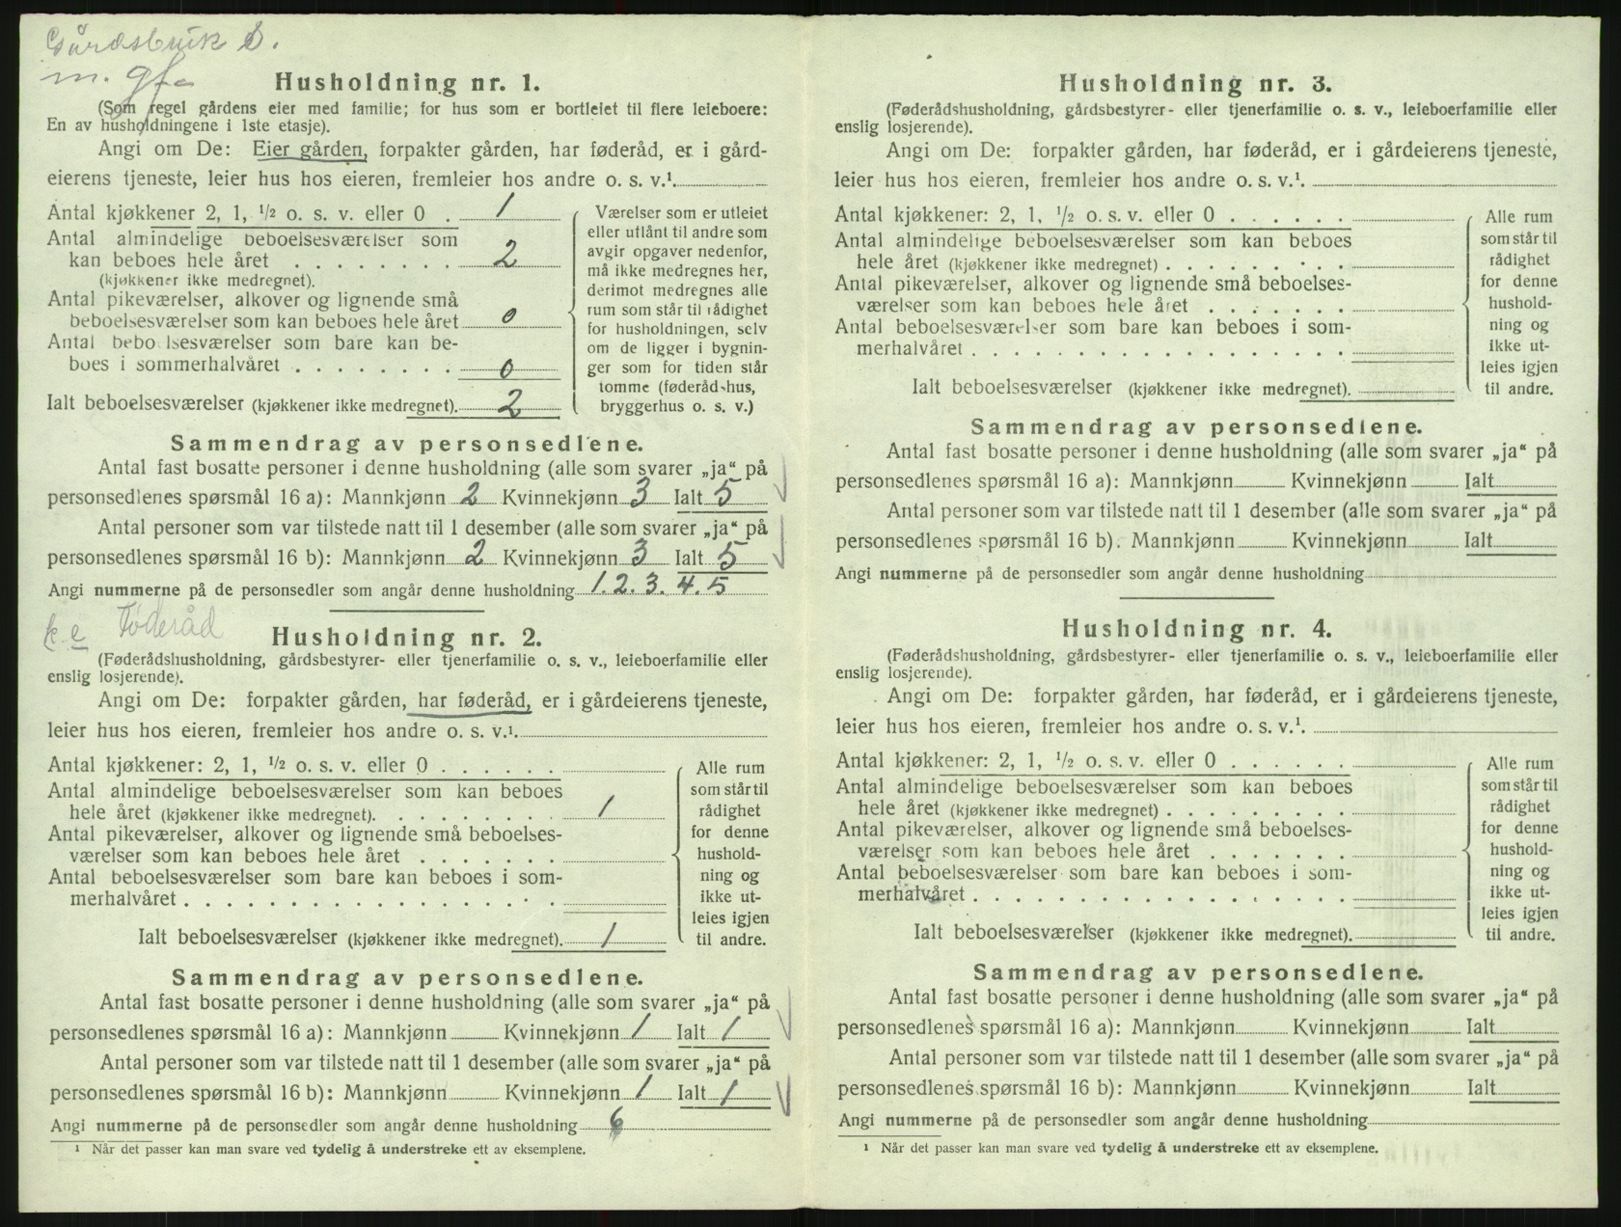 Gårdsbruk
m. gf.
Husholdning nr. 1.
(Som regel gårdens eier med familie; for hus som er bortleiet til flere leieboere:
En av husholdningene i 1ste etasje).
Angi om De: Eier gården, forpakter gården, har føderåd, er i gård-
eierens tjeneste, leier hus hos eieren, fremleier hos andre o. s. v.¹
Antal kjøkkener 2, 1, ½ o. s. v. eller 0 . 1
Antal almindelige beboelsesværelser som
kan beboes hele året . . . . . . . . 2
(kjøkkener ikke medregnet).
Antal pikeværelser, alkover og lignende små
beboelsesværelser som kan beboes hele året 0
Antal beboelsesværelser som bare kan be-
boes i sommerhalvåret . . . . . . . . 0
Ialt beboelsesværelser (kjøkkener ikke medregnet). 2
Værelser som er utleiet
eller utlånt til andre som
avgir opgaver nedenfor,
må ikke medregnes her,
derimot medregnes alle
rum som står til rådighet
for husholdningen, selv
om de ligger i bygnin-
ger som for tiden står
tomme (føderådshus,
bryggerhus o. s. v.)
Sammendrag av personsedlene.
Antal fast bosatte personer i denne husholdning (alle som svarer „ja“ på
personsedlenes spørsmål 16 a): Mannkjønn 2 Kvinnekjønn 3 Ialt 5
Antal personer som var tilstede natt til 1 desember (alle som svarer „ja“ på
personsedlenes spørsmål 16 b): Mannkjønn 2 Kvinnekjønn 3 Ialt 5
Angi nummerne på de personsedler som angår denne husholdning 1. 2. 3. 4. 5
k.e Føderåd
Husholdning nr. 2.
(Føderådshusholdning, gårdsbestyrer- eller tjenerfamilie o. s. v., leieboerfamilie eller
enslig losjerende).
Angi om De: forpakter gården, har føderåd, er i gårdeierens tjeneste,
leier hus hos eieren, fremleier hos andre o. s. v.¹.
Antal kjøkkener: 2, 1, ½ o. s. v. eller 0 . . . . . .
Antal almindelige beboelsesværelser som kan beboes
hele året (kjøkkener ikke medregnet). . . . . . . . . 1
Antal pikeværelser, alkover og lignende små beboelses-
værelser som kan beboes hele året . . . . . . .
Antal beboelsesværelser som bare kan beboes i som-
merhalvåret . . . . . . . . . . . . . . . . . .
Ialt beboelsesværelser (kjøkkener ikke medregnet). 1
Alle rum
som står til
rådighet
for denne
hushold-
ning og
ikke ut-
leies igjen
til andre.
Sammendrag av personsedlene.
Antal fast bosatte personer i denne husholdning (alle som svarer „ja“ på
personsedlenes spørsmål 16 a): Mannkjønn Kvinnekjønn 1 Ialt 1
Antal personer som var tilstede natt til 1 desember (alle som svarer „ja“ på
personsedlenes spørsmål 16 b): Mannkjønn Kvinnekjønn 1 Ialt 1
Angi nummerne på de personsedler som angår denne husholdning 6
¹ Når det passer kan man svare ved tydelig å understreke ett av eksemplene.
Husholdning nr. 3.
(Føderådshusholdning, gårdsbestyrer- eller tjenerfamilie o. s. v., leieboerfamilie eller
enslig losjerende).
Angi om De: forpakter gården, har føderåd, er i gårdeierens tjeneste,
leier hus hos eieren, fremleier hos andre o. s. v.¹.
Antal kjøkkener: 2, 1, ½ o. s. v. eller 0 . . . . . .
Antal almindelige beboelsesværelser som kan beboes
hele året (kjøkkener ikke medregnet) . . . . . . . . .
Antal pikeværelser, alkover og lignende små beboelses-
værelser som kan beboes hele året . . . . . . .
Antal beboelsesværelser som bare kan beboes i som-
merhalvåret . . . . . . . . . . . . . . . . . .
Ialt beboelsesværelser (kjøkkener ikke medregnet).
Alle rum
som står til
rådighet
for denne
hushold-
ning og
ikke ut-
leies igjen
til andre.
Sammendrag av personsedlene.
Antal fast bosatte personer i denne husholdning (alle som svarer „ja“ på
personsedlenes spørsmål 16 a): Mannkjønn Kvinnekjønn Ialt
Antal personer som var tilstede natt til 1 desember (alle som svarer „ja“ på
personsedlenes spørsmål 16 b). Mannkjønn Kvinnekjønn Ialt
Angi nummerne på de personsedler som angår denne husholdning
Husholdning nr. 4.
(Føderådshusholdning, gårdsbestyrer- eller tjenerfamilie o. s. v., leieboerfamilie eller
enslig losjerende).
Angi om De: forpakter gården, har føderåd, er i gårdeierens tjeneste,
leier hus hos eieren, fremleier hos andre o. s. v.¹.
Antal kjøkkener: 2, 1, ½ o. s. v. eller 0 . . . . . .
Antal almindelige beboelsesværelser som kan beboes
hele året (kjøkkener ikke medregnet) . . . . . . . . .
Antal pikeværelser, alkover og lignende små beboelses-
værelser som kan beboes hele året . . . . . . .
Antal beboelsesværelser som bare kan beboes i som-
merhalvåret . . . . . . . . . . . . . . . . . .
Ialt beboelsesværelser (kjøkkener ikke medregnet).
Alle rum
som står til
rådighet
for denne
hushold-
ning og
ikke ut-
leies igjen
til andre.
Sammendrag av personsedlene.
Antal fast bosatte personer i denne husholdning (alle som svarer „ja“ på
personsedlenes spørsmål 16 a): Mannkjønn Kvinnekjønn Ialt
Antal personer som var tilstede natt til 1 desember (alle som svarer „ja“ på
personsedlenes spørsmål 16 b): Mannkjønn Kvinnekjønn Ialt
Angi nummerne på de personsedler som angår denne husholdning
¹ Når det passer kan man svare ved tydelig å understreke ett av eksemplene.